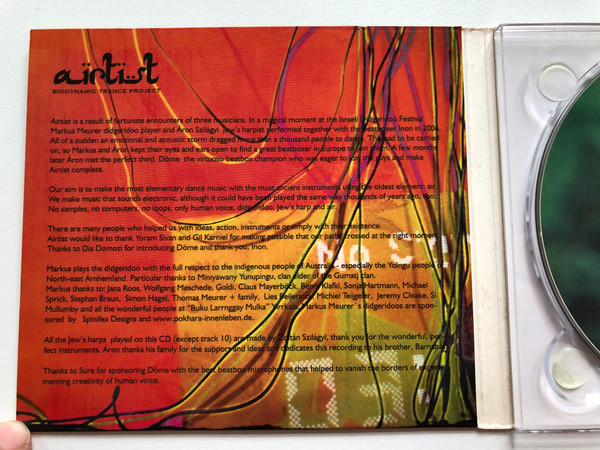 aïrtist
BIODYNAMIC TRANCE PROJECT
Airtist is a result of fortunate encounters of three musicians. In a magical moment at the Israeli Didgeridoo Festival
Markus Meurer didgeridoo player and Áron Szilágyi Jew's harpist performed together with the beatboxer Inon in 2006.
All of a sudden an emotional and acoustic storm dragged more than a thousand people to dance. That had to be carried
on, so Markus and Áron kept their eyes and ears open to find a great beatboxer in Europe to join them. A few months
later Áron met the perfect third, Döme the virtuoso beatbox champion who was eager to join the guys and make
Airtist complete.
Our aim is to make the most elementary dance music with the most ancient instruments using the oldest element: air.
We make music that sounds electronic, although it could have been played the same way thousands of years ago, too.
No samples, no computers, no loops, only human voice, didgeridoo, Jew's harp and air.
There are many people who helped us with ideas, action, instruments or simply with their existence.
Airtist would like to thank Yoram Sivan and Gil Karniel for making possible that our paths crossed at the right moment.
Thanks to Dia Domozi for introducing Döme and thank you, Inon.
Markus plays the didgeridoo with the full respect to the indigenous people of Australia - especially the Yolngu people of
North-east Arnhemland. Particular thanks to Miniyawany Yunupingu, clan elder of the Gumatj clan.
Markus thanks to: Jana Roos, Wolfgang Meschede, Goldi, Claus Mayerböck, Benny Klafki, Sonja Hartmann, Michael
Sprick, Stephan Braun, Simon Hagel, Thomas Meurer + family, Lies Beijerinck, Michiel Teijgeler, Jeremy Cloake, Si
Mullumby and all the wonderful people at "Buku Larrnggay Mulka" Yirrkala. Markus Meurer´s didgeridoos are spon-
sored by Spinifex Designs and www.pokhara-innenleben.de.
All the Jew's harps played on this CD (except track 10) are made by Zoltán Szilágyi, thank you for the wonderful, per-
fect instruments. Áron thanks his family for the support and ideas and dedicates this recording to his brother, Barnabás.
Thanks to Sure for sponsoring Döme with the best beatbox microphones that helped to vanish the borders of experi-
menting creativity of human voice.